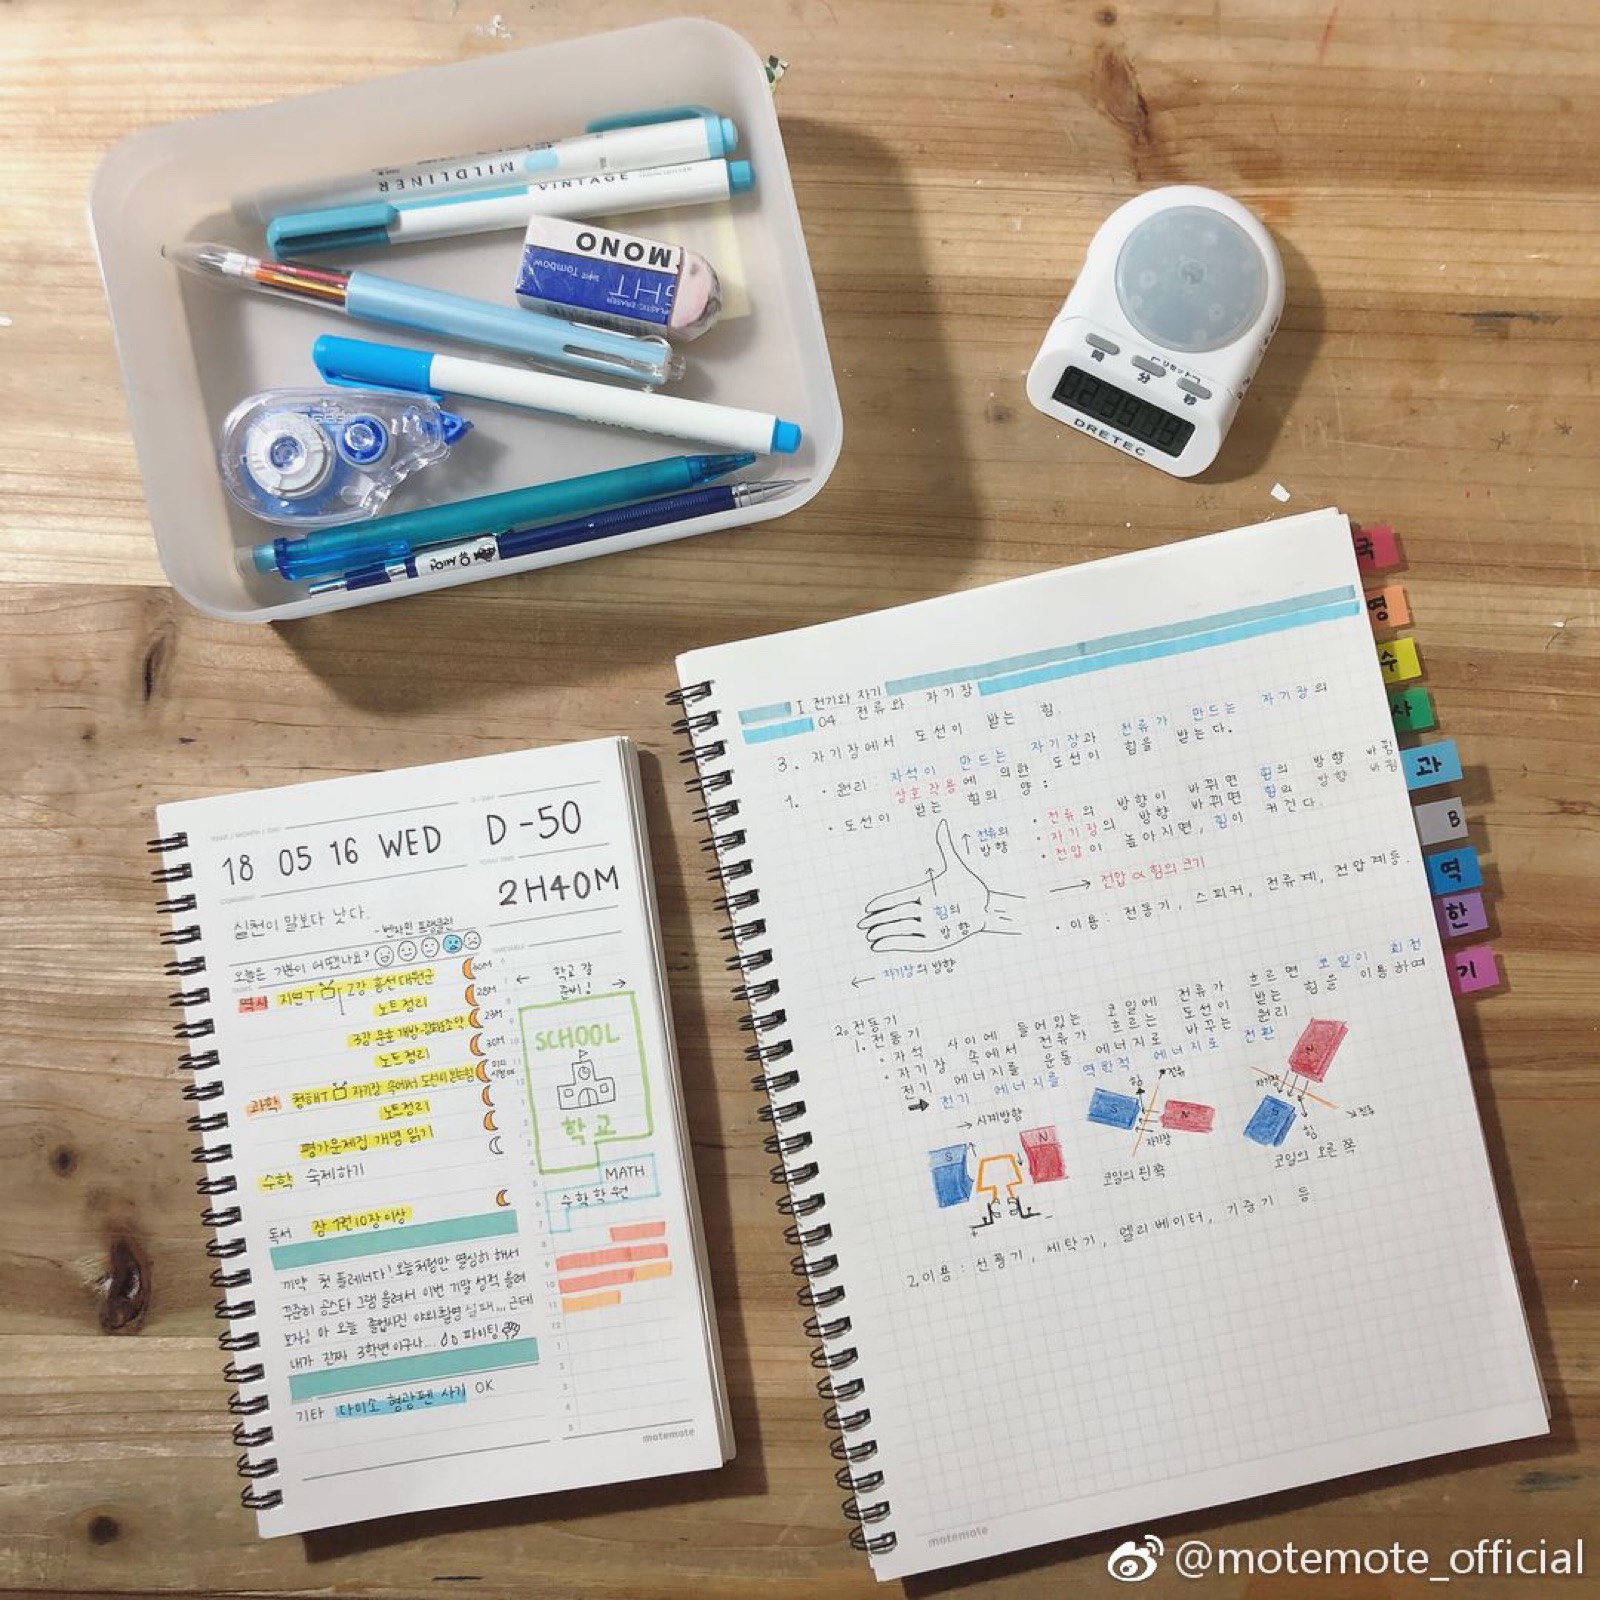 MILDLINER
VINTAGE
MONO
Tombow
PLASTIC ERASER
DRETEC
時
分
秒
リセット
YEAR / MONTH / DAY
D-DAY
18 05 16 WED D-50
TOTAL TIME
2H40M
COMMENT
실천이 말보다 낫다.
- 벤자민 프랭클린
오늘은 기분이 어땠나요?
TIMETABLE
역사 지면T 2강 흥선대원군
노트정리
3강 문호개방·강화도조약
노트정리
과학 청해T 자기장 속에서 도선이 받는 힘
노트정리
평가문제집 개념 읽기
수학 숙제하기
독서 잠 1권10장이상
60M
28M
23M
30M
학교 갈
준비!
SCHOOL
학교
MATH
수학학원
끼약 첫 플래너다! 오늘처럼만 열심히 해서
꾸준히 공스타그램 올려서 이번 기말 성적 올려
보자! 아 오늘 졸업사진 야외촬영 실패... 근데
내가 진짜 3학년이구나... 화이팅
기타 다이소 형광펜 사기 OK
motemote
I 전기와 자기
04. 전류와 자기장
3. 자기장에서 도선이 받는 힘.
1. · 원리 : 자석이 만드는 자기장과 전류가 만드는 자기장의
상호작용에 의한 도선이 힘을 받는다.
· 도선이 받는 힘의 양 :
· 전류의 방향이 바뀌면 힘의 방향 바뀜
· 자기장의 방향 바뀌면 힘의 방향 바뀜
· 전압이 높아지면, 힘이 커진다.
→ 전압 ∝ 힘의 크기
↑ 전류의 방향
힘의 방향
← 자기장의 방향
· 이용 : 전동기, 스피커, 전류계, 전압계 등.
2. 전동기
1. 전동기
· 자석 사이에 들어있는 코일에 전류가 흐르면 코일이 회전
· 자기장 속에서 전류가 흐르는 도선이 받는 힘을 이용하여
전기 에너지를 운동 에너지로 바꾸는 원리
➡ 전기 에너지를 역학적 에너지로 전환
→ 시계방향
S
N
힘
전류
S
N
자기장
코일의 왼쪽
N
자기장
S
힘
전류
코일의 오른쪽
2. 이용 : 선풍기, 세탁기, 엘리베이터, 기중기 등
motemote
국
영
수
사
과
B
역
한
기
@motemote_official